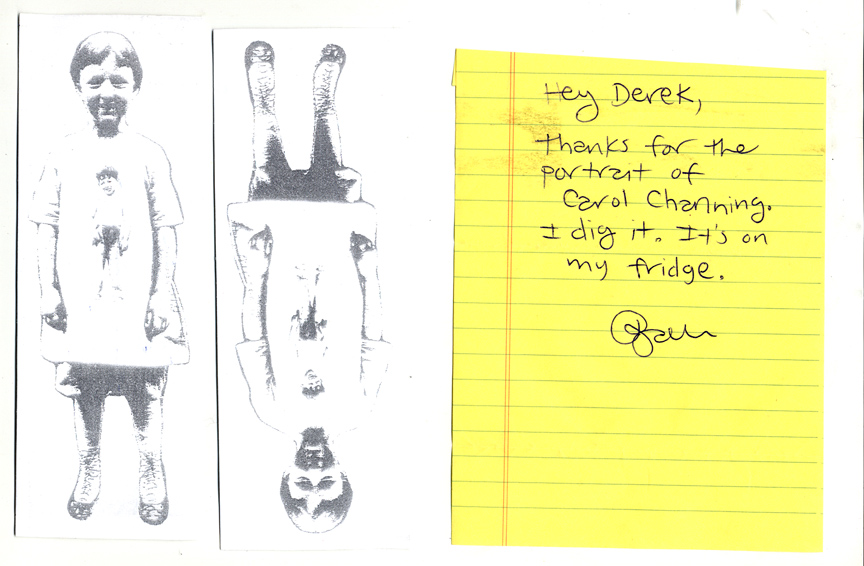 Hey Derek,
Thanks for the
portrait of
Carol Channing.
I dig it. It's on
my fridge.